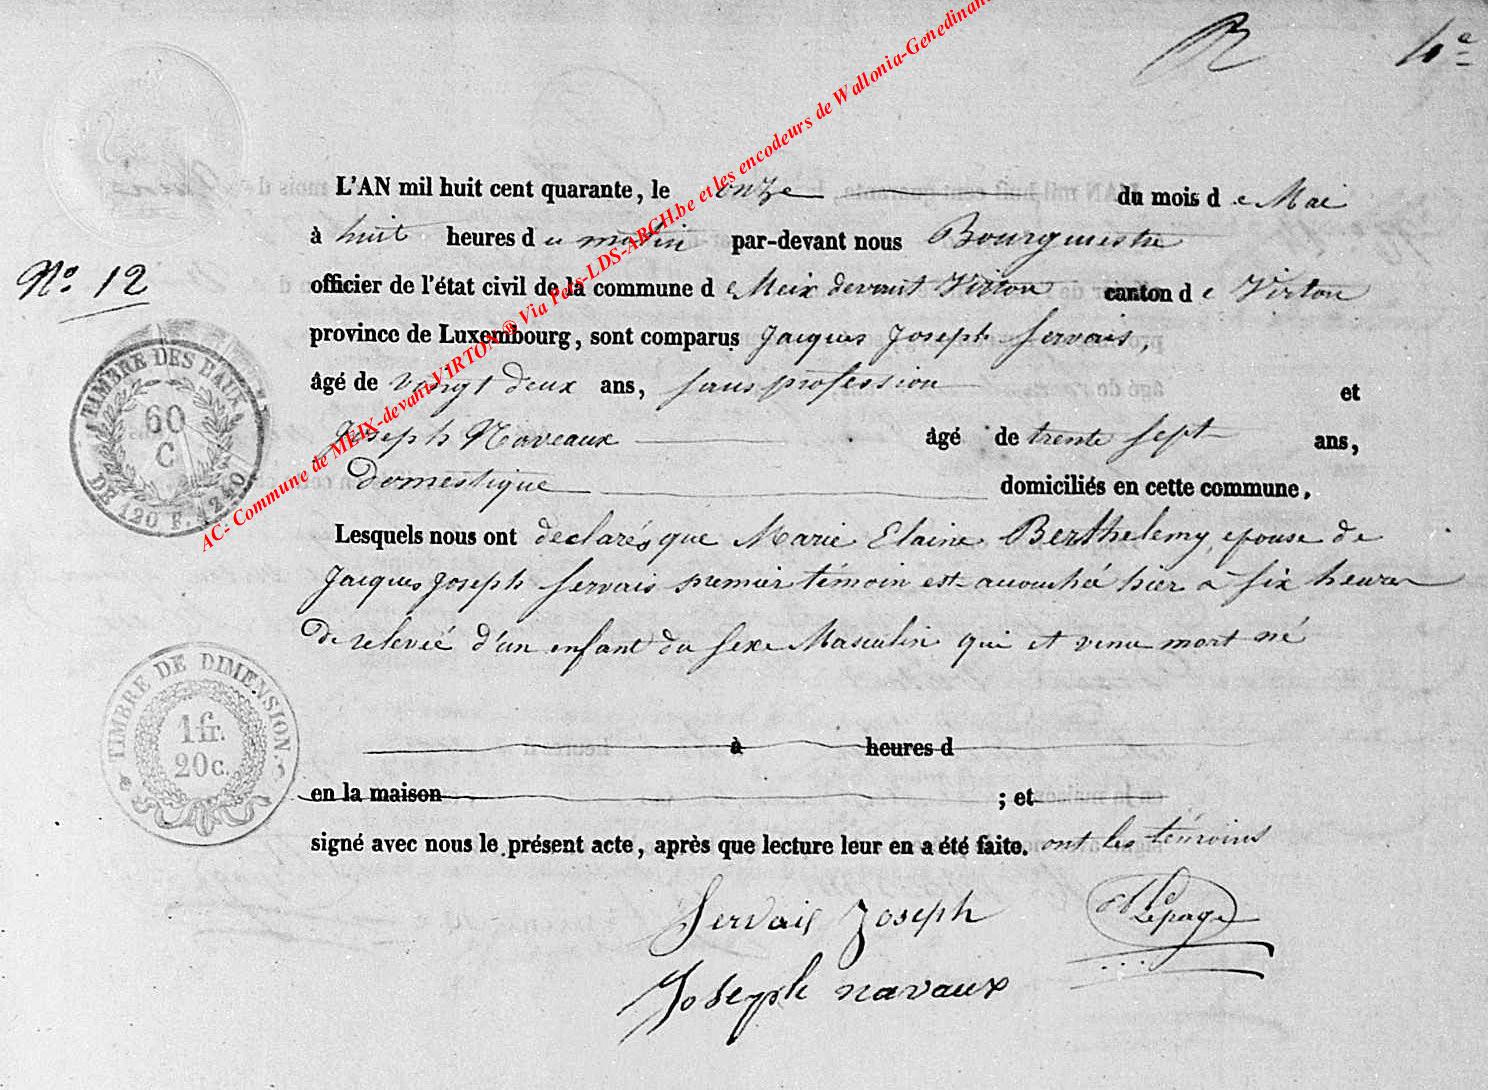 R 4e
L'AN mil huit cent quarante, le onze du mois de Mai
à huit heures du matin par-devant nous Bourgmestre
officier de l'état civil de la commune de Meix devant Virton canton de Virton
N° 12
province de Luxembourg, sont comparus Jacques Joseph Servais,
âgé de vingt deux ans, sans profession et
Joseph Navaux âgé de trente sept ans,
domestique domiciliés en cette commune.
Lesquels nous ont declarés que Marie Elaine Berthelemy, epouse de
Jacques Joseph Servais premier témoin est accouchéé hier à six heures
de relevéé d'un enfant du sexe Masculin qui et venu mort né
à heures d
en la maison ; et
signé avec nous le présent acte, après que lecture leur en a été faite. ont les témoins
Servais Joseph
Lepage
Joseph navaux
TIMBRE DES EAUX
60
C
DE 120 F. 1240
TIMBRE DE DIMENSION.
1 fr.
20 c.
AC- Commune de MEIX-devant-VIRTON ® Via Pets-LDS-ARCH.be et les encodeurs de Wallonia-Genedinan